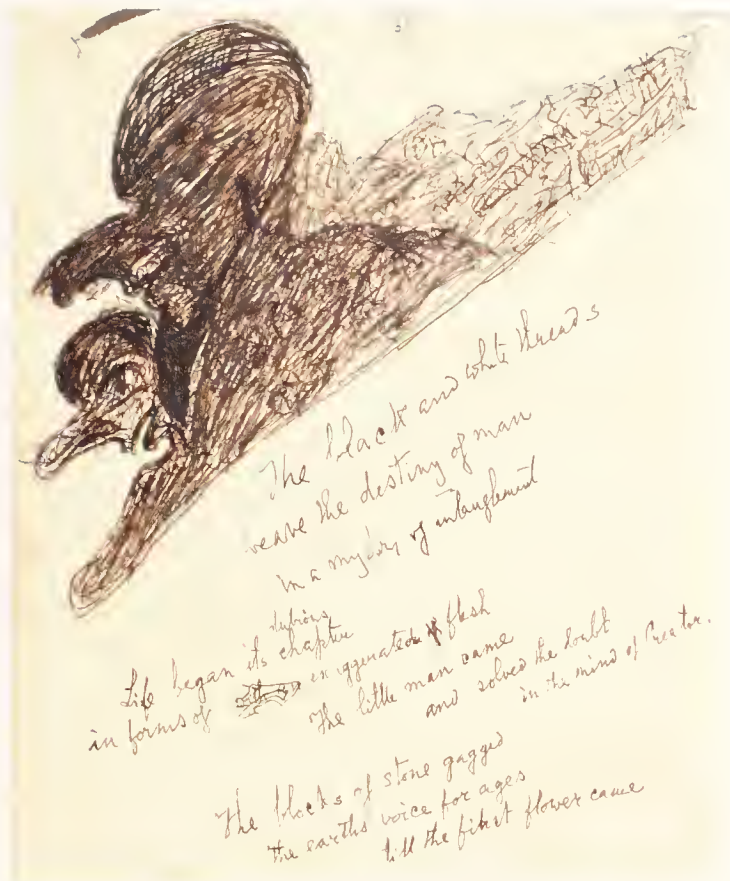 The black and white threads
weave the destiny of man
in a of intanglement
dubious
Life began its chapter
in forms of exaggerated flesh
The little man came
and solved the doubt
in the mind of Creator.
The blocks of stone gagged
the earths voice for ages
till the first flower came